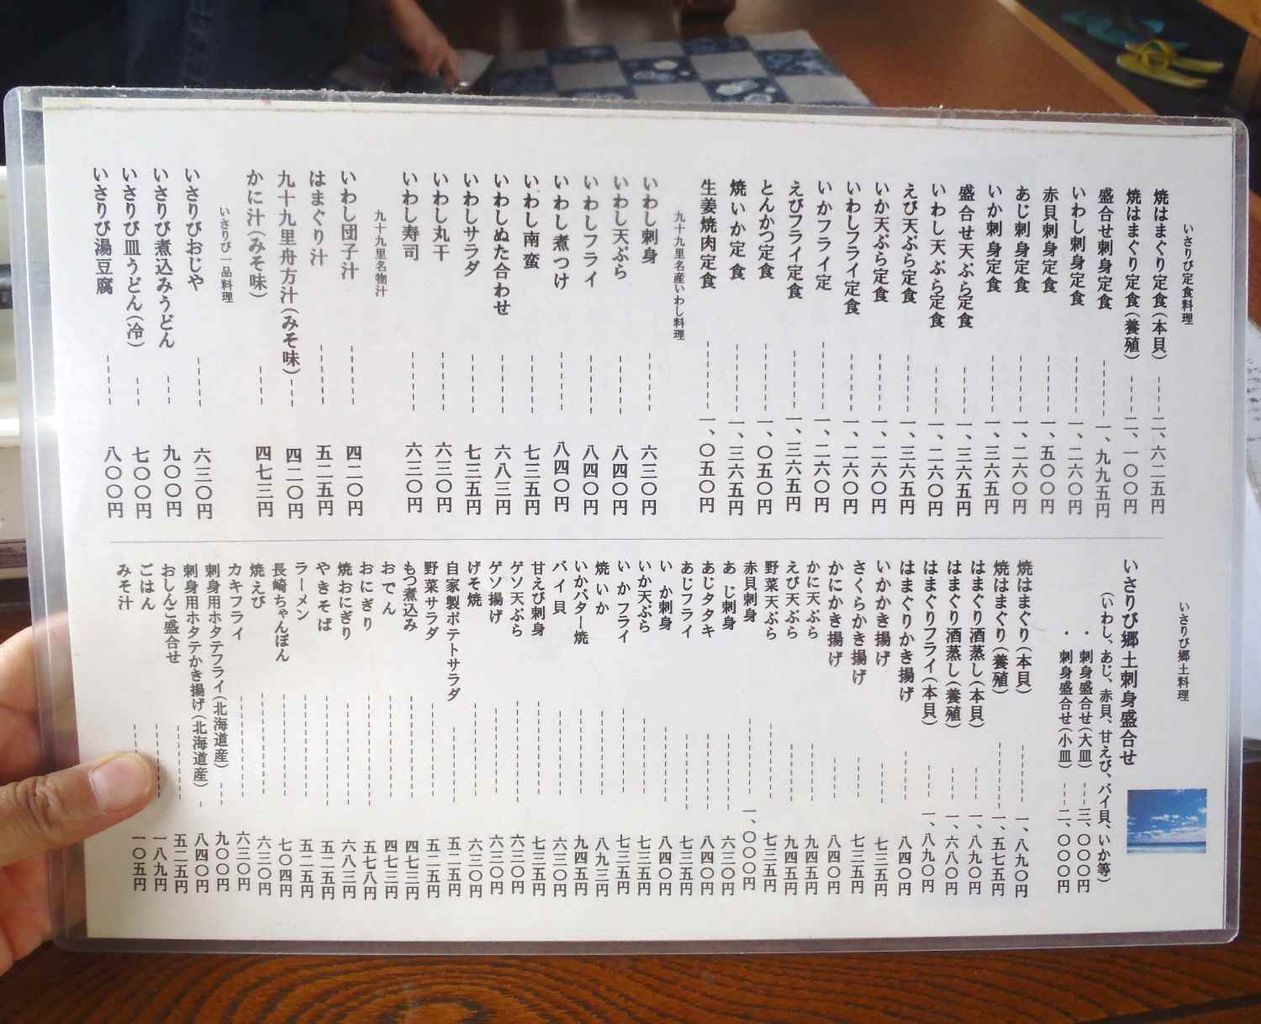 いさりび定食料理
焼はまぐり定食(本貝) 二、六二五円
焼はまぐり定食(養殖) 二、一〇〇円
盛合せ刺身定食 一、九九五円
いわし刺身定食 一、二六〇円
赤貝刺身定食 一、五〇〇円
あじ刺身定食 一、二六〇円
いか刺身定食 一、三六五円
盛合せ天ぷら定食 一、三六五円
いわし天ぷら定食 一、二六〇円
えび天ぷら定食 一、三六五円
いか天ぷら定食 一、二六〇円
いわしフライ定食 一、二六〇円
いかフライ定 一、二六〇円
えびフライ定食 一、三六五円
とんかつ定食 一、〇五〇円
焼いか定食 一、三六五円
生姜焼肉定食 一、〇五〇円
九十九里名産いわし料理
いわし刺身 六三〇円
いわし天ぷら 八四〇円
いわしフライ 八四〇円
いわし煮つけ 八四〇円
いわし南蛮 七三五円
いわしぬた合わせ 六八三円
いわしサラダ 七三五円
いわし丸干 六三〇円
いわし寿司 六三〇円
九十九里名物汁
いわし団子汁 四二〇円
はまぐり汁 五二五円
九十九里舟方汁(みそ味) 四二〇円
かに汁(みそ味) 四七三円
いさりび一品料理
いさりびおじや 六三〇円
いさりび煮込みうどん 九〇〇円
いさりび皿うどん(冷) 七〇〇円
いさりび湯豆腐 八〇〇円
いさりび郷土料理
いさりび郷土刺身盛合せ
(いわし、あじ、赤貝、甘えび、バイ貝、いか等)
・刺身盛合せ(大皿) 三、〇〇〇円
・刺身盛合せ(小皿) 二、〇〇〇円
焼はまぐり(本貝) 一、八九〇円
焼はまぐり(養殖) 一、五七五円
はまぐり酒蒸し(本貝) 一、八九〇円
はまぐり酒蒸し(養殖) 一、六八〇円
はまぐりフライ(本貝) 一、八九〇円
はまぐりかき揚げ 八四〇円
いかかき揚げ 七三五円
さくらかき揚げ 七三五円
かにかき揚げ 八四〇円
かに天ぷら 九四五円
えび天ぷら 九四五円
野菜天ぷら 七三五円
赤貝刺身 一、〇〇〇円
あじ刺身 七三五円
あじタタキ 八四〇円
あじフライ 七三五円
いか刺身 八四〇円
いか天ぷら 七三五円
いかフライ 七三五円
焼いか 八九三円
いかバター焼 九四五円
バイ貝 六三〇円
甘えび刺身 七三五円
ゲソ天ぷら 六三〇円
ゲソ揚げ 六三〇円
げそ焼 六三〇円
自家製ポテトサラダ 五二五円
野菜サラダ 五二五円
もつ煮込み 四七三円
おでん 四七三円
おにぎり 五七八円
焼おにぎり 六八三円
やきそば 五二五円
ラーメン 五二五円
長崎ちゃんぽん 七〇四円
焼えび 六三〇円
カキフライ 六三〇円
刺身用ホタテフライ(北海道産) 九〇〇円
刺身用ホタテかき揚げ(北海道産) 八四〇円
おしんこ盛合せ 五二五円
ごはん 一八九円
みそ汁 一〇五円